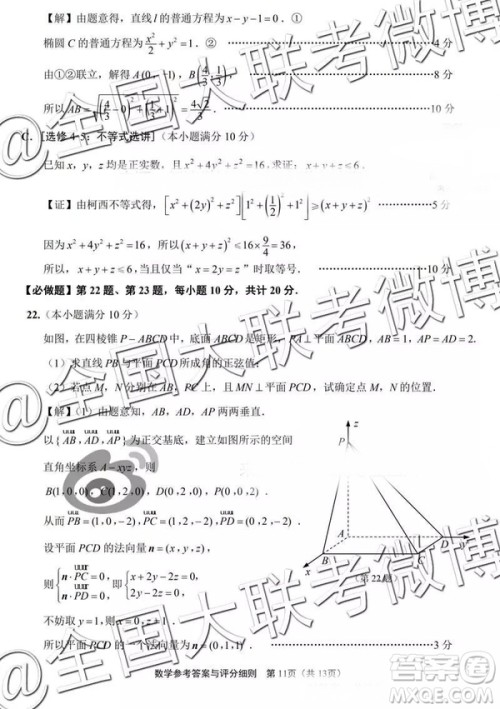 【解】由题意得，直线 l 的普通方程为 x－y－1＝0．①
椭圆 C 的普通方程为 x²/2＋y²＝1．② 4分
由①②联立，解得 A(0，－1)，B(4/3，1/3)， 8分
所以 AB＝√((4/3－0)²＋(1/3＋1)²)＝4√2/3． 10分
C．[选修 4－5：不等式选讲]（本小题满分 10 分）
已知 x，y，z 均是正实数，且 x²＋4y²＋z²＝16，求证：x＋y＋z≤6．
【证】由柯西不等式得，[x²＋(2y)²＋z²][1²＋(1/2)²＋1²]≥(x＋y＋z)² 5分
因为 x²＋4y²＋z²＝16，所以 (x＋y＋z)²≤16×9/4＝36，
所以，x＋y＋z≤6，当且仅当“x＝2y＝z”时取等号． 10分
【必做题】第 22 题、第 23 题，每小题 10 分，共计 20 分．
22.（本小题满分 10 分）
如图，在四棱锥 P－ABCD 中，底面 ABCD 是矩形，PA⊥平面 ABCD，AB＝1，AP＝AD＝2．
（1）求直线 PB 与平面 PCD 所成角的正弦值；
（2）若点 M，N 分别在 AB，PC 上，且 MN⊥平面 PCD，试确定点 M，N 的位置．
【解】（1）由题意知，AB，AD，AP 两两垂直．
以{AB，AD，AP}为正交基底，建立如图所示的空间
直角坐标系 A－xyz，则
B(1，0，0)，C(1，2，0)，D(0，2，0)，P(0，0，2)．
从而 PB＝(1，0，－2)，PC＝(1，2，－2)，PD＝(0，2，－2)，
设平面 PCD 的法向量 n＝(x，y，z)，
则 {n·PC＝0，n·PD＝0， 即 {x＋2y－2z＝0，2y－2z＝0，
不妨取 y＝1，则 x＝0，z＝1．
所以平面 PCD 的一个法向量为 n＝(0，1，1)． 3分
z
P
A
B
C
D
x
y
（第 22 题）
数学参考答案与评分细则 第 11页（共 13页）
@全国大联考微博
@全国大联考微博
答案圈